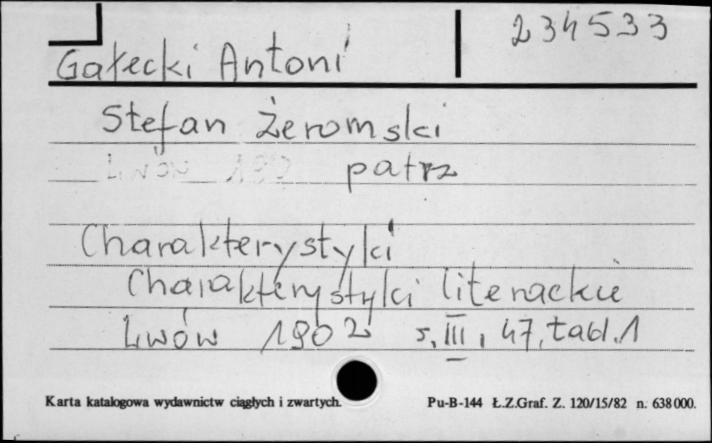 234533
Gałecki Antoni
Stefan Żeromski
Lwów 190 patrz
Charakterystyki
Charakterystyki literackie
Lwów 1902 s. III, 47, tabl. 1
Karta katalogowa wydawnictw ciągłych i zwartych.
Pu-B-144 Ł.Z.Graf. Z. 120/15/82 n. 638000.